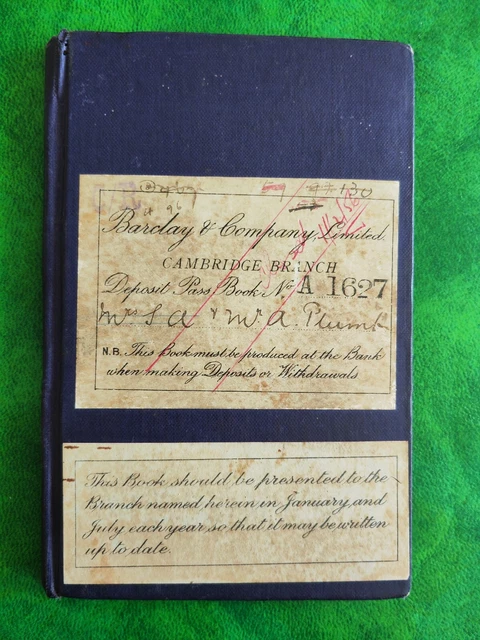 130
96
Barclay & Company, Limited.
CAMBRIDGE BRANCH
Deposit Pass Book No A 1627
Mrs S A & Mr A. Plumb
N.B. This Book must be produced at the Bank
when making Deposits or Withdrawals
This Book should be presented to the
Branch named herein in January and
July each year, so that it may be written
up to date.